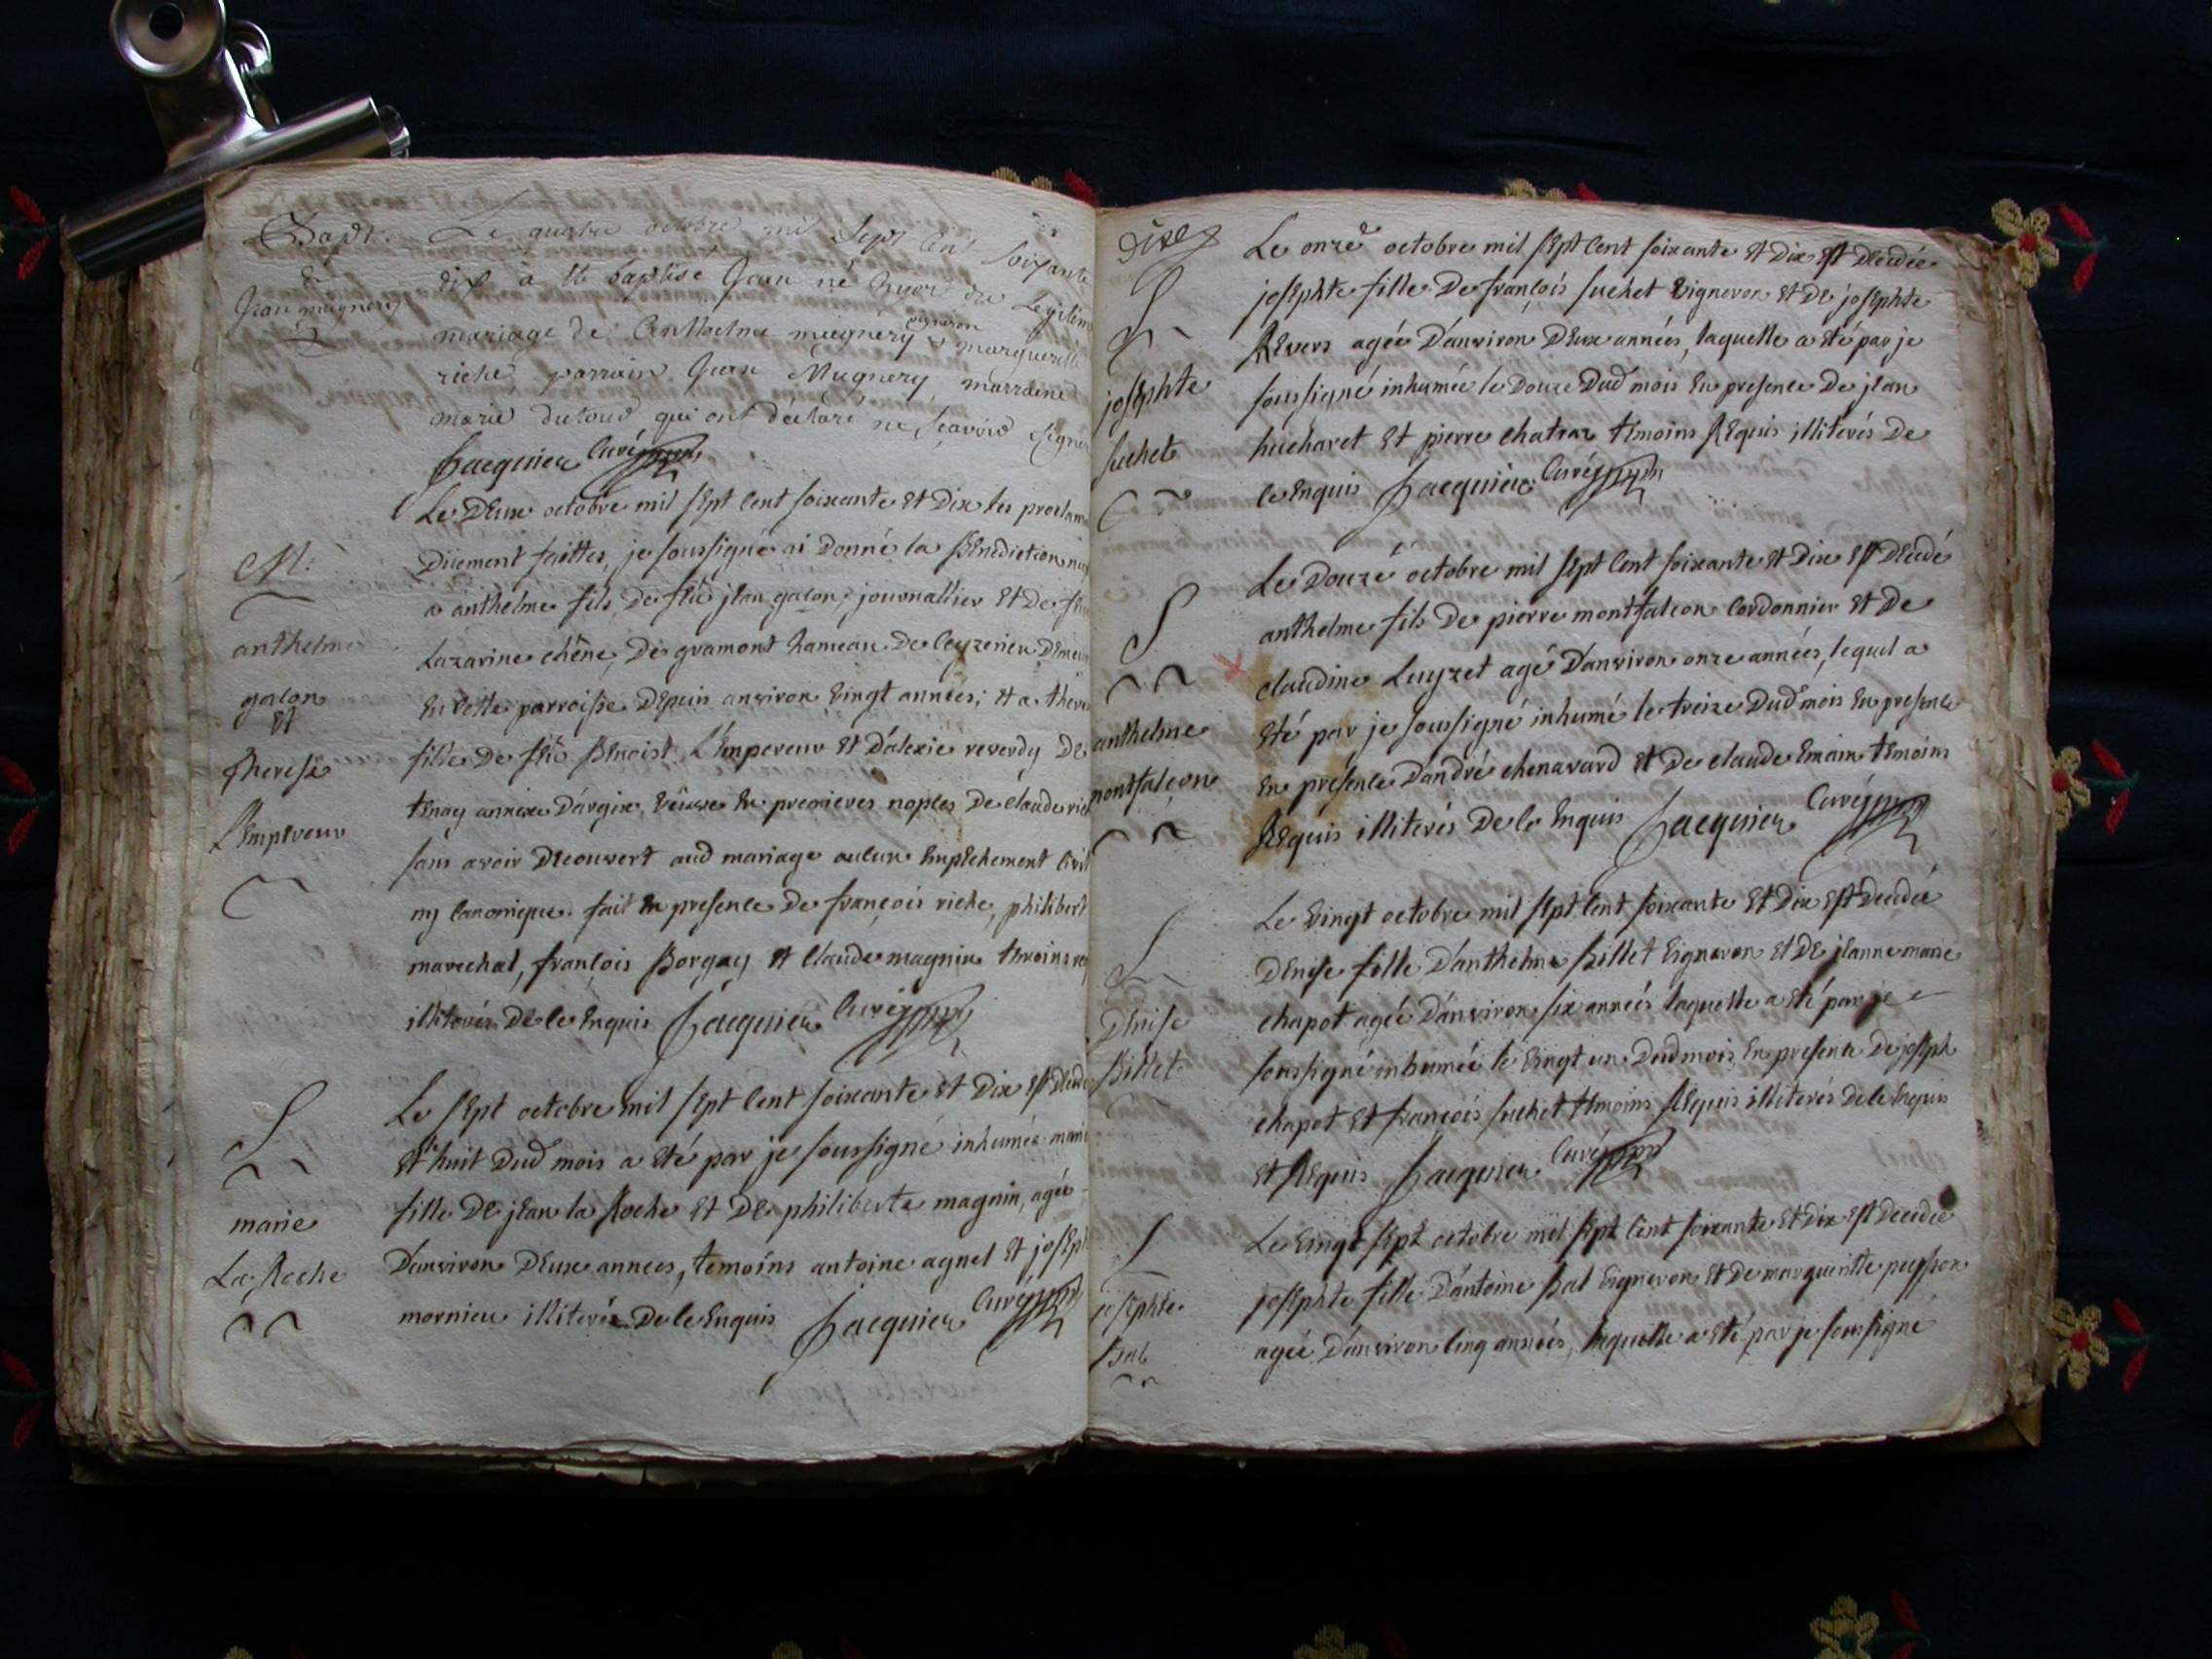 Bapt.
de
Jean mugnery
Le quatre octobre mil Sept Cent Soixante
dix à été baptisé Jean né hyer du Legitim
mariage de Anthelme mugnery vigneron & marguerite
riche, parrain Jean Mugnery, marraine
marie dutour qui ont déclaré ne sçavoir signer
Jacquier Curé
M:
anthelme
galon
Et
Therese
L'Empereur
Le Deux octobre mil sept Cent soixante Et Dix les proclam
Duement faittes, je soussigné ai Donné la Bénédiction nup
a anthelme fils De feu jean galon, journallier Et De feu
Lazarine chêne, De gramont hameau De Ceyzerieu Demeu
En Cette parroisse Depuis anviron vingt années; Et a there
fille De feu Benoist L'Empereur Et D'alexie reverdy De
tenay annexe D'argix, veuve En premieres noples De claude rich
sans avoir Decouvert aud mariage aucun Empêchement Civil
ny Canonique. fait En presence De françois riche, philibert
marechal, françois Borgey Et Claude magnin temoins req
illiterés De le Enquis Jacquier Curé
S
marie
La Roche
Le sept octobre mil sept Cent soixante Et Dix Est Decedé
Et le huit Dud mois a été par je soussigné inhumée marie
fille De jean la Roche Et De philiberte magnin, agée
D'anviron Deux annees, temoins antoine agnel Et joseph
mornieu illiterés De le Enquis Jacquier Curé
S
josephte
suchet
Le onze octobre mil sept Cent soixante Et Dix Est Decedée
josephte fille De françois suchet vigneron Et De josephte
Revers agée D'anviron Deux années, laquelle a été par je
soussigné inhumée le Douze Dud mois En presence De jean
hucharet Et pierre chatrar temoins Requis illiterés De
le Enquis Jacquier Curé
S
anthelme
montfalcon
Le Douze octobre mil sept Cent soixante Et Dix Est Decedé
anthelme fils De pierre montfalcon Cordonnier Et De
claudine Luyzet agé D'anviron onze années, lequel a
été par je soussigné inhumé le treize Dud mois En presence
En presence D'andré chenavard Et De claude Emain temoins
Requis illiterés De le Enquis Jacquier Curé
S
Denise
Billet
Le vingt octobre mil sept Cent soixante Et Dix Est Decedée
Denise fille D'anthelme Billet vigneron Et De jeanne marie
chapot agée D'anviron six années laquelle a été par je
soussigné inhumée le vingt un Dud mois En presence De joseph
chapot Et françois suchet temoins Requis illiterés De le Enquis
Et Requis Jacquier Curé
S
josephte
Bal
Le vingt sept octobre mil sept Cent soixante Et Dix Est Decedée
josephte fille D'antoine Bal vigneron Et De margueritte
agée D'anviron Cinq années, laquelle a été par je soussigné